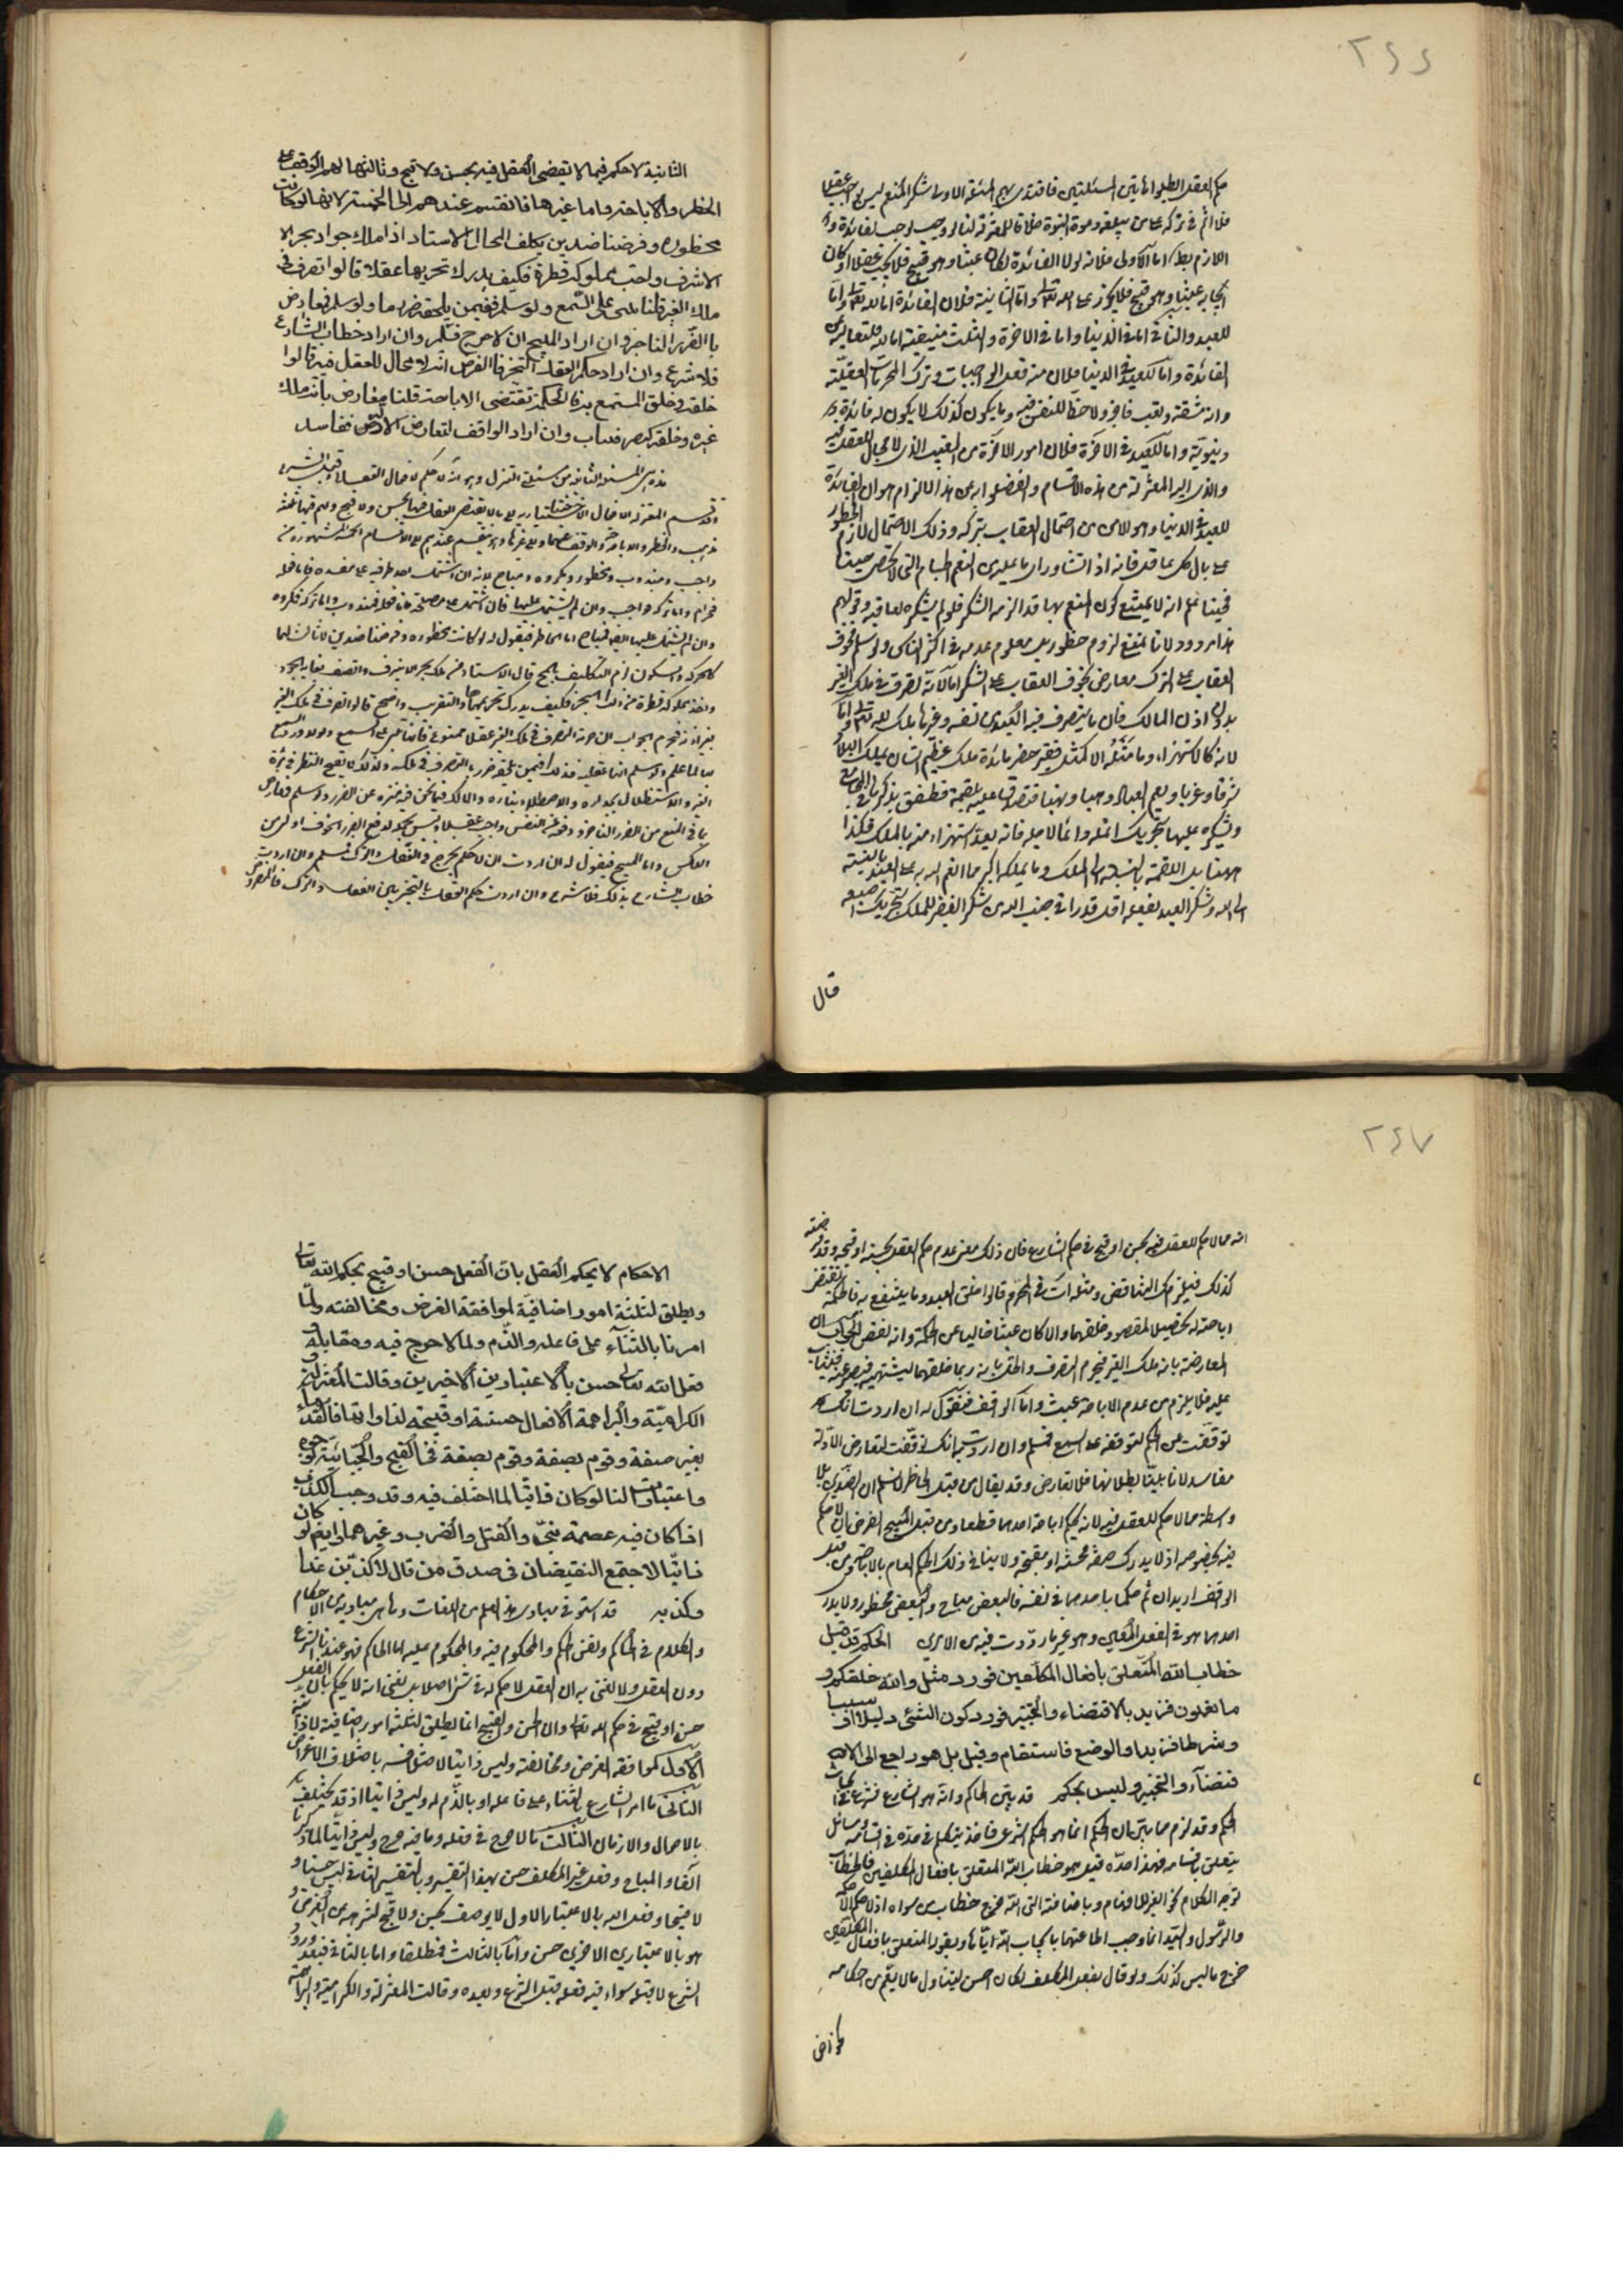 ٢٤٤
حكم العقل ابطلوا هاتين المسئلتين فاقتدى بهم المسئلة الاولى شكر المنعم ليس بواجب عقلا
فلا اثم في تركه على من لم يبلغه دعوة النبوة خلافا للمعتزلة لنا لو وجب لوجب لفائدة و
اللازم بط اما الاولى فلانه لولا الفائدة لكان عبثا وهو قبيح فلا يجب عقلا او كان
ايجابه عبثا وهو قبيح فلا يجوز على الله تعالى واما الثانية فلان الفائدة اما لله تعالى واما
للعبد والثاني اما في الدنيا واما في الاخرة والثلث منتفية اما لله فلتعاليه عن
الفائدة واما للعبد في الدنيا فلان منه فعل الواجبات وترك المحرمات العقلية
وانه مشقة وتعب ناجز ولا حظ للنفس فيه وما يكون كذلك لا يكون له فائدة
دنيوية واما للعبد في الاخرة فلان امور الاخرة من الغيب الذى لا مجال للعقل فيه
والذى اليه المعتزلة من هذه الاقسام وانفصلوا به عن هذا الالزام هو ان الفائدة
للعبد في الدنيا وهو الامن من احتمال العقاب بتركه وذلك الاحتمال لازم الخطور
على بال كل عاقل فانه اذا نشا وراى ما عليه من النعم الجسام التى لا تحصى حينا
فحينا علم انه لا يمتنع كون المنعم بها قد الزمه الشكر فلو لم يشكره لعاقبه وقولهم
هذا مردود لانا نمنع لزوم خطوره بل معلوم عدمه في اكثر الناس ولو سلم فخوف
العقاب على الترك معارض بخوف العقاب على الشكر اما لانه تصرف في ملك الغير
بدون اذن المالك فان ما يتصرف فيه العبد من نفسه وغيرها ملك لله تعالى واما
لانه كالاستهزاء وما مثله الا كمثل فقير حضر مائدة ملك عظيم الشان يملك البلاد
شرقا وغربا ويعم العباد وهبا ونهبا فتصدق عليه بلقمة فطفق يذكرها في المجامع
ويشكره عليها بتحريك انملته دائما لاجله فانه يعد استهزاء منه بالملك فكذا
ههنا بل اللقمة بالنسبة الى الملك وما يملكه اكبر مما انعم الله به على العبد بالنسبة
الى الله وشكر العبد بفعله اقل قدرا في جنب الله من شكر الفقير للملك بتحريك اصبعه
قال
الثانية لا حكم فيما لا يقضى العقل فيه بحسن ولا قبح وثالثها لهم الوقف على
الحظر والاباحة واما غيرها فانقسم عندهم الى الخمسة لانها لو كانت
محظورة وفرضنا ضدين يكلف المحال الاستاد اذا ملك جواد بحرا لا
ينزف واحب مملوكه قطرة فكيف يدرك تحريمها عقلا قالوا تصرف في
ملك الغير قلنا يبنى على السمع ولو سلم ففيمن يلحقه ضرر ما ولو سلم فمعارض
بالضرر الناجز وان اراد المبيح ان لا حرج فسلم وان اراد خطاب الشارع
فلا شرع وان اراد حكم العقل التخير فالفرض انه لا مجال للعقل فيه قالوا
خلقه وخلق المنتفع به فالحكمة تقتضى الاباحة قلنا معارض بانه ملك
غيره وخلقه ليصبر فيثاب وان اراد الواقف لتعارض الادلة ففاسد
هذه هى المسئلة الثانية من مسئلتى التنزل وهو انه لا حكم لافعال العقلاء قبل الشرع
وقد قسم المعتزلة الافعال الاختيارية الى ما لا يقضى العقل فيها بحسن ولا قبح ولهم فيها ثلثة
مذاهب الحظر والاباحة والوقف عنهما والى غيرها وهو ينقسم عندهم الى الاقسام الخمسة المشهورة من
واجب ومندوب ومحظور ومكروه ومباح لانه ان اشتمل احد طرفيه على مفسدة فاما فعله
فحرام واما تركه فواجب وان لم يشتمل عليها فان اشتمل على مصلحة فاما فعله فمندوب واما تركه فمكروه
وان لم يشتمل عليها ايضا فمباح اما الحاظر فنقول له لو كانت محظورة وفرضنا ضدين لا ثالث لهما
كالحركة والسكون لزم التكليف بالمحال قال الاستاد من ملك بحرا لا ينزف واتصف بغاية الجود
واخذ مملوكه قطرة من ذلك البحر فكيف يدرك تحريمها والتقريب واضح قالوا تصرف في ملك الغير
بغير اذنه فيحرم الجواب ان حرمة التصرف في ملك الغير عقلا ممنوع فانها تبتنى على السمع ولولا ورود السمع
بها لما علم ولو سلم انها عقلية فذلك فيمن يلحقه ضرر ما بالتصرف في ملكه ولذلك لا يقبح النظر في مرآة
الغير والاستظلال بجداره والاصطلاء بناره والمالك فيما نحن فيه منزه عن الضرر ولو سلم فمعارض
بما في المنع من الضرر الناجز ودفعه عن النفس واجب عقلا وليس تحمله لدفع الضرر الخوف اولى من
العكس واما المبيح فنقول له ان اردت ان لا حكم بحرج في الفعل والترك فمسلم وان اردت
خطاب الشارع بذلك فلا شرع وان اردت حكم العقل بالتخيير بين الفعل والترك فالمفروض
٢٤٧
انه مما لا حكم للعقل فيه بحسن او قبح في حكم الشارع فان ذلك معنى عدم حكم العقل بحسنه او قبحه وقد فرضته
كذلك فيلزمك التناقض ومثله آت في المحرم قالوا خلق العبد وما ينتفع به فالحكمة تقتضى
اباحته له تحصيلا لمقصود خلقهما والا كان عبثا خاليا عن الحكمة وانه نقص الجواب ان
المعارضة بانه ملك الغير فيحرم التصرف والحل بانه ربما خلقهما ليشتهيه فيصبر عنه فيثاب
عليه فلا يلزم من عدم الاباحة عبث واما الواقف فنقول له ان اردت انك
توقفت عن الحكم لتوقفه على السمع فمسلم وان اردت به انك توقفت لتعارض الادلة
ففاسد لانا بينا بطلانها فلا تعارض وقد يقال من قبل الحاظر لا نسلم ان الضدين بلا
واسطة مما لا حكم للعقل فيه لانه يحكم اباحة احدهما قطعا ومن قبل المبيح الفرض ان لا حكم
فيه بخصوصه اذ لا يدرك صفة محسنة او مقبحة ولا ينافي ذلك الحكم العام بالاباحة ومن قبل
الواقف اريد ان ثم حكما باحدهما في نفسه فالبعض مباح والبعض محظور ولا يدرى
احدهما هو في الفعل المعين وهو غير ما رددت فيه من الامرين الحكم قد قيل
خطاب الله المتعلق بافعال المكلفين فورد مثل والله خلقكم و
ما تعملون فزيد بالاقتضاء والتخيير فورد كون الشئ دليلا او سببا
وشرطا فزيد او الوضع فاستقام وقيل بل هو راجع الى الا
قتضاء والتخيير وليس بحكم قد بين الحاكم وانه هو الشارع فشرع في ابحاث
الحكم وقد لزم مما بين ان الحكم انما هو الحكم الشرعى فاخذ يتكلم في حده في اقسامه ومسائل
يتعلق باقسامه فهذا حده قيل هو خطاب الله المتعلق بافعال المكلفين فالخطاب
توجه الكلام نحو الغير للافهام وباضافته الى الله خرج خطاب من سواه اذ لا حكم الا حكمه
والرسول والسيد انما وجب اطاعتهما بايجاب الله اياها وبقوله المتعلق بافعال المكلفين
خرج ما ليس كذلك ولو قال بفعل المكلف لكان احسن ليتناول ما لا يعم من احكامه
كخواص
الاحكام لا يحكم العقل بان الفعل حسن او قبيح بحكم الله تعالى
ويطلق لثلثة امور اضافية لموافقة الغرض ومخالفته ولما
امرنا بالثناء على فاعله والذم ولما لا حرج فيه ومقابله و
فعل الله تعالى حسن بالاعتبارين الاخيرين وقالت المعتزلة و
الكرامية والبراهمة الافعال حسنة او قبيحة لذاواتها فالقدماء
بغير صفة وقوم بصفة وقوم بصفة في القبح والجبائية لوجوه
واعتبارات لنا لو كان ذاتيا لما اختلف فيه وقد وجب الكذب
اذا كان فيه عصمة نبى والقتل والضرب وغيرهما وايض لو كان
ذاتيا لاجتمع النقيضان في صدق من قال لاكذبن غدا
وكذبه قد استوفى مبادى هذا العلم من اللغات وهى مباديه من الاحكام
والكلام في الحاكم ونفس الحكم والمحكوم فيه والمحكوم عليه اما الحاكم فهو عندنا الشرع
دون العقل ولا نعنى به ان العقل لا حكم له في شئ اصلا بل نعنى انه لا يحكم بان الفعل
حسن او قبيح في حكم الله تعالى وان الحسن والقبيح انما يطلق لثلثة امور اضافية لا ذاتية
الاول لموافقة الغرض ومخالفته وليس ذاتيا لاختلافه باختلاف الاغراض
الثانى ما امر الشارع بالثناء على فاعله او بالذم له وليس ذاتيا اذ قد يختلف
بالاحوال والازمان الثالث ما لا حرج في فعله وما فيه حرج وليس ذاتيا لما ذكرنا
آنفا والمباح وفعل غير المكلف حسن بهذا التفسير وبالتفسير الثانى ليس حسنا و
لا قبيحا وفعل الله بالاعتبار الاول لا يوصف بحسن ولا قبح لتنزهه من الغرض و
هو بالاعتبارين الاخيرين حسن واما بالثالث فمطلقا واما بالثانى فبعد ورود
الشرع لا قبله سواء فيه فعله قبل الشرع وبعده وقالت المعتزلة والكرامية والبراهمة